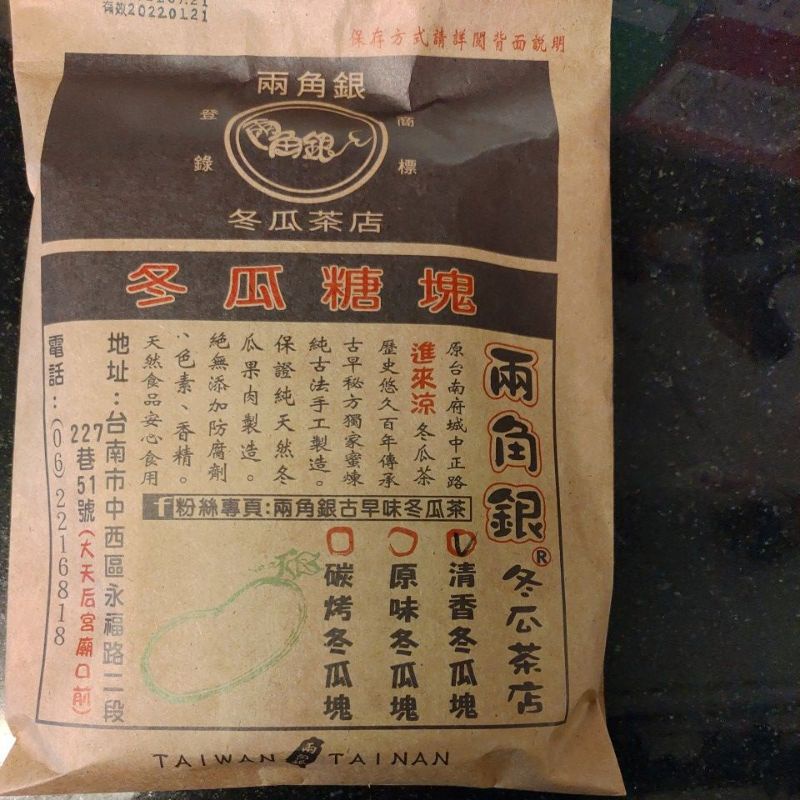 有效2022.01.21
保存方式請詳閱背面說明
兩角銀
登錄
商標
兩角銀
冬瓜茶店
冬瓜糖塊
兩角銀®冬瓜茶店
原台南府城中正路
進來涼冬瓜茶
歷史悠久百年傳承
古早秘方獨家蜜煉
純古法手工製造。
保證純天然冬
瓜果肉製造。
絕無添加防腐劑
、色素、香精。
天然食品安心食用
f粉絲專頁:兩角銀古早味冬瓜茶
清香冬瓜塊
原味冬瓜塊
碳烤冬瓜塊
地址:台南市中西區永福路二段
227巷51號(大天后宮廟口前)
電話:(06)2216818
TAIWAN 兩角銀 TAINAN